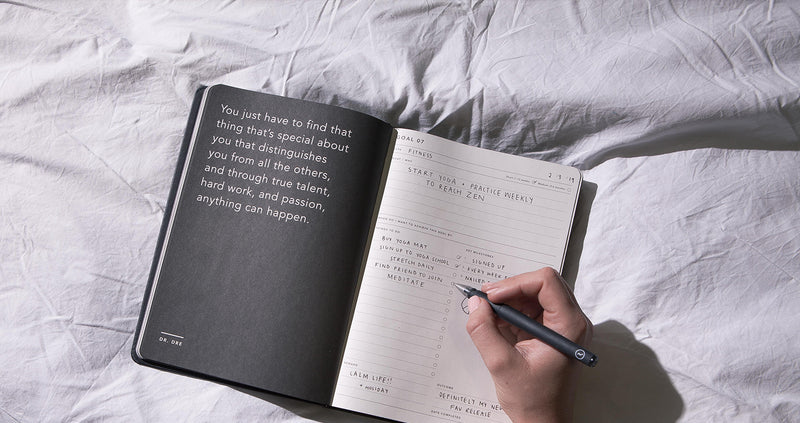 You just have to find that
thing that's special about
you that distinguishes
you from all the others,
and through true talent,
hard work, and passion,
anything can happen.
DR. DRE
GOAL 07
FITNESS
2 3 19
START YOGA + PRACTICE WEEKLY
TO REACH ZEN
THINGS TO DO
KEY MILESTONES
BUY YOGA MAT
SIGN UP TO YOGA SCHOOL
STRETCH DAILY
FIND FRIEND TO JOIN
MEDITATE
SIGNED UP
EVERY WEEK
NAILED
REWARD
CALM LIFE!!
+ HOLIDAY
OUTCOME
DEFINITELY MY NEW
FAV RELEASE
DATE COMPLETED